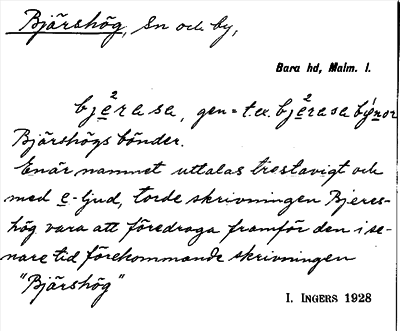 Bjärshög, sn och by,
Bara hd, Malm. l.
bjèrasa, gen = t.ex. bjèrasa býnor
Bjärshögs bönder.
Enär namnet uttalas trestavigt och
med e-ljud, torde skrivningen Bjeres-
hög vara att föredraga framför den i se-
nare tid förekommande skrivningen
"Bjärshög"
I. INGERS 1928